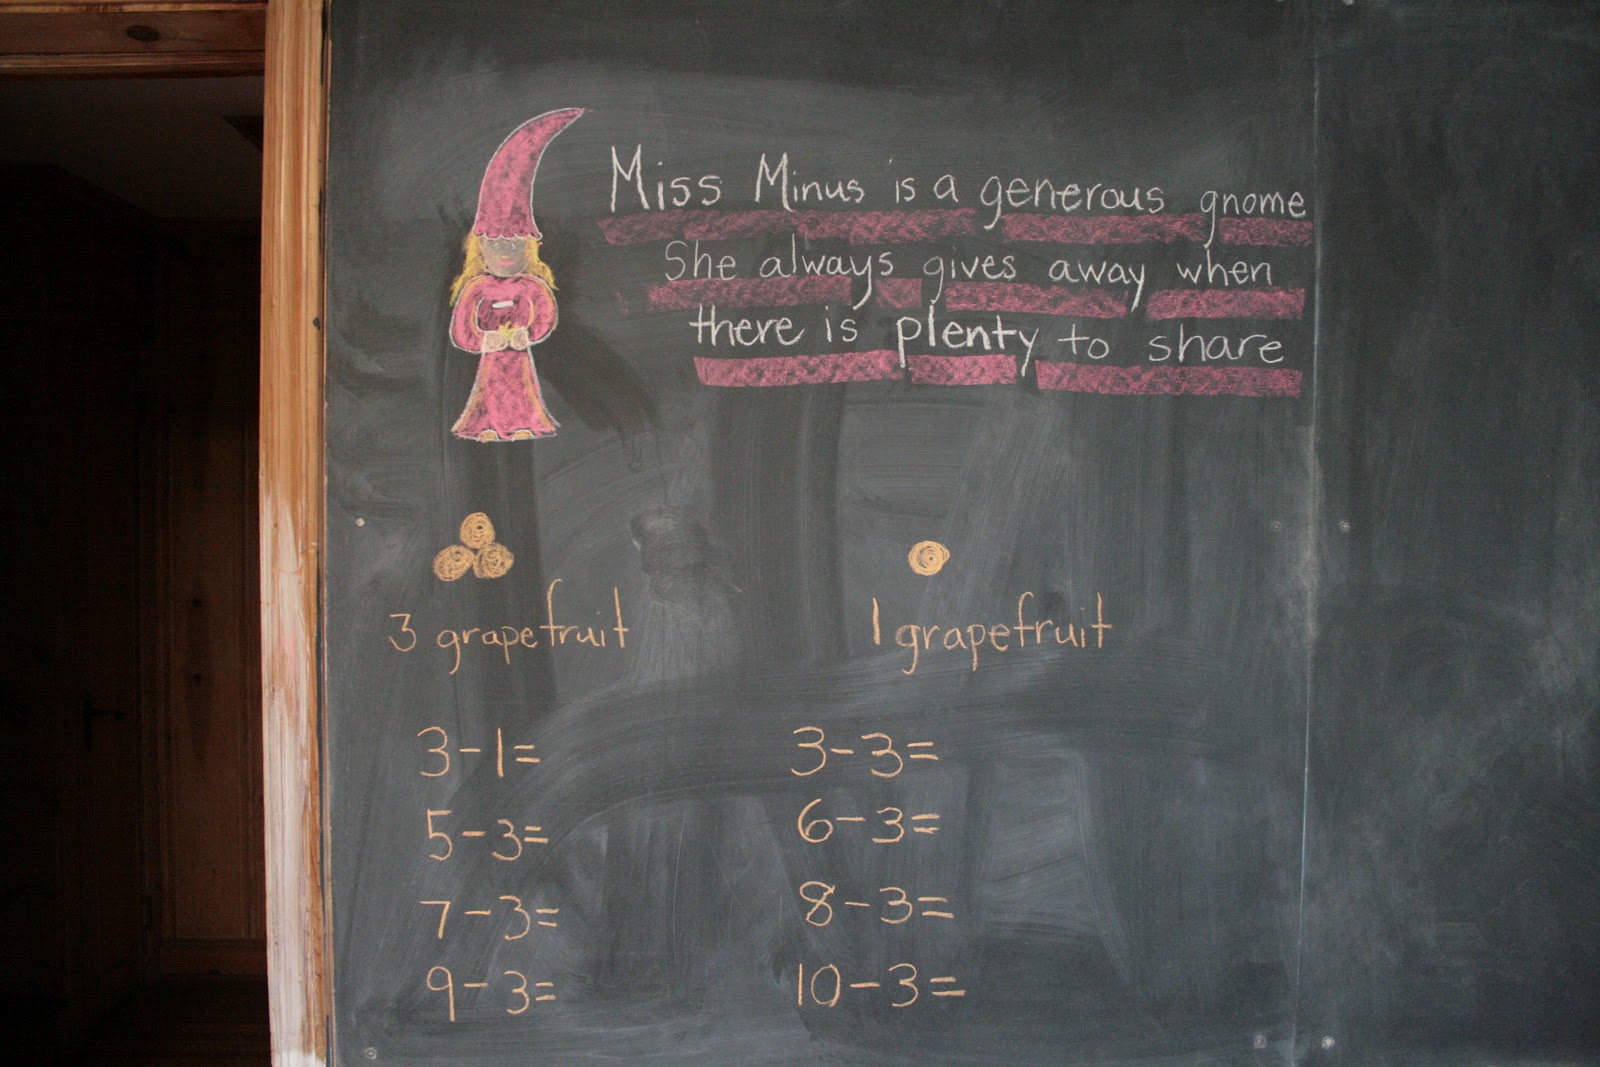 Miss Minus is a generous gnome
She always gives away when
there is plenty to share
3 grapefruit 1 grapefruit
3-1= 3-3=
5-3= 6-3=
7-3= 8-3=
9-3= 10-3=